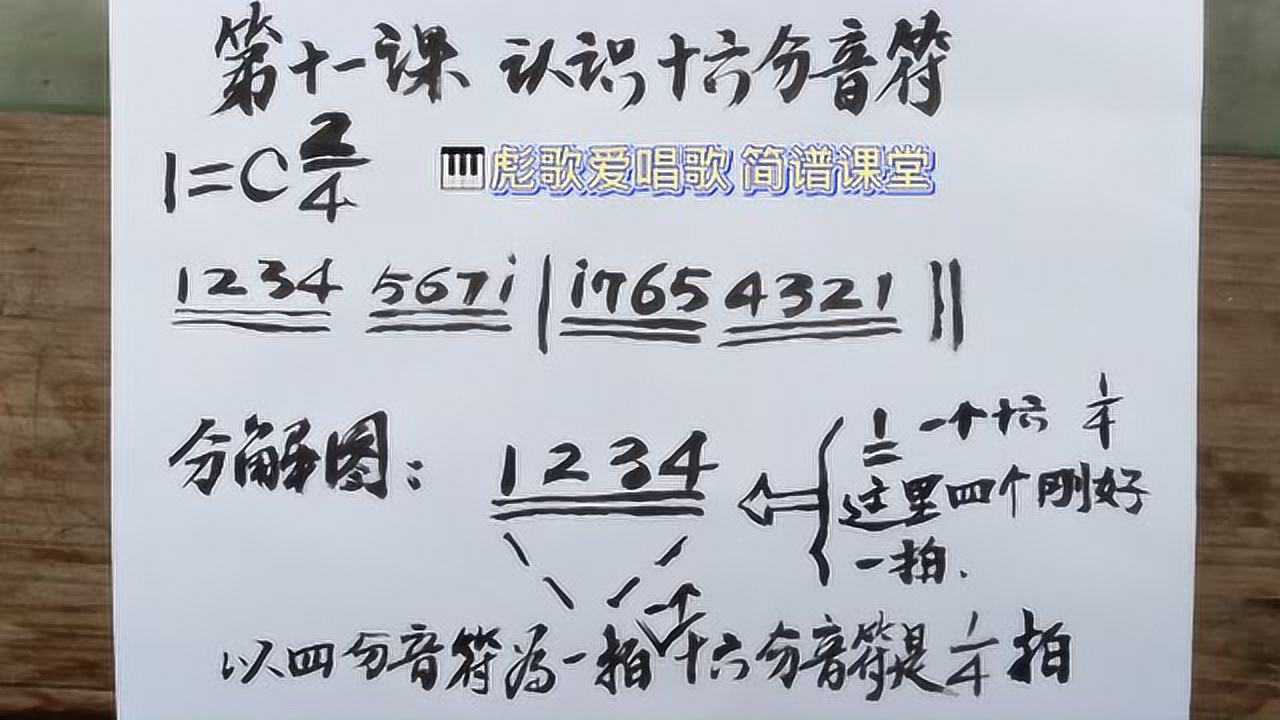 第十一课 认识十六分音符
1=C 2/4
彪歌爱唱歌 简谱课堂
1234 567i | i765 4321 ||
分解图：
1234
1 一个十六 1/4
这里四个刚好
一拍.
以四分音符为一拍 十六分音符是1/4拍